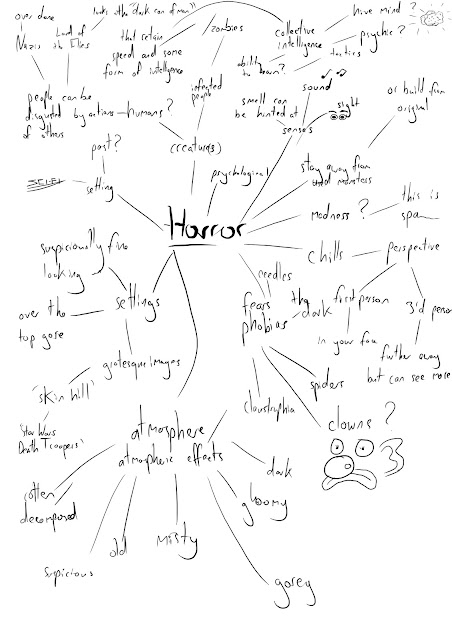 over done
Nazis
Lord of
the Flies
looks @ the "dark con of man"
that retain
speed and some
form of intelligence
zombies
infected
people
collective
intelligence
ability
to learn?
tactics
hive mind?
psychic?
sound
sight
smell can
be hunted at
senses
or build from
original
people can be
disgusted by actions
of others
humans?
creature(s)
past?
setting
psychological
stay away from
usual monsters
Horror
madness?
this is
chills
perspective
first person
in your face
3'd person
further away
but can see more
suspiciously fine
looking
settings
over the
top gore
grotesque images
'skin hill'
'Star Wars
Death Troopers'
needles
fears
phobias
the
dark
spiders
clowns?
claustrophia
atmosphere
atmospheric effects
rotten
decomposed
suspicious
old
Misty
dark
gloomy
gorey